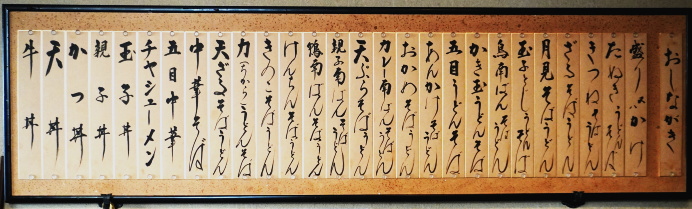 おしながき
盛り かけ
たぬき うどん そば
きつね そば うどん
ざるそばうどん
月見そばうどん
玉子とじ うどん そば
鳥南ばんうどんそば
かき玉うどんそば
五目うどんそば
あんかけ そば うどん
おかめそばうどん
カレー南ばん うどん そば
天ぷらそばうどん
親子南ばんそばうどん
鴨南ばんそばうどん
けんちんそばうどん
きのこそばうどん
力(ちから)そばうどん
天ざるそばうどん
中華そば
五目中華
チャシューメン
玉子丼
親子丼
かつ丼
天丼
牛丼